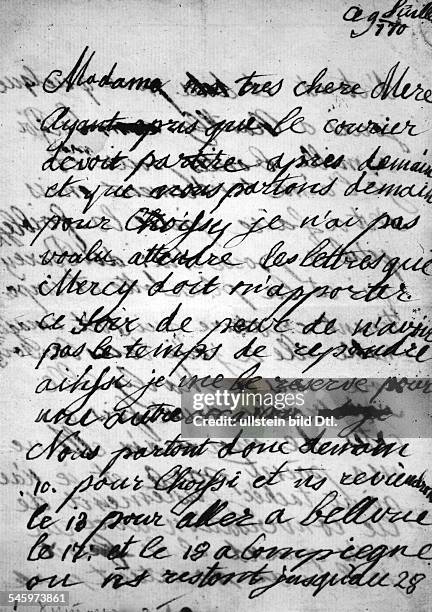 ce 9 Juillet
1770
Madame tres chere Mere
Ayant apris que le courier
devoit partire apres demain
et que nous partons demain
pour Choissy je n'ai pas
voulu attendre les lettres que
Mercy doit m'apporter
ce soir de peur de n'avoir
pas le temps de repondre
ainssi je me le reserve pour
une autre
Nous partont donc demain
10. pour Choissi et ns reviendrons
le 13 pour aller a bellvue
le 17. et le 18 a Compiegne
ou ns restont jusqu'au 28
gettyimages
ullstein bild Dtl.
545973861